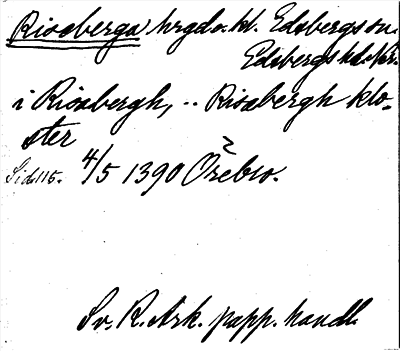 Riseberga hrgd o. kl. Edsbergs sn.
Edsbergs hd. När.
i Risabergh, .. Risabergh klo-
ster
Sid 115. 4/5 1390 Örebro.
Sv. R. Ark. papp. handl.